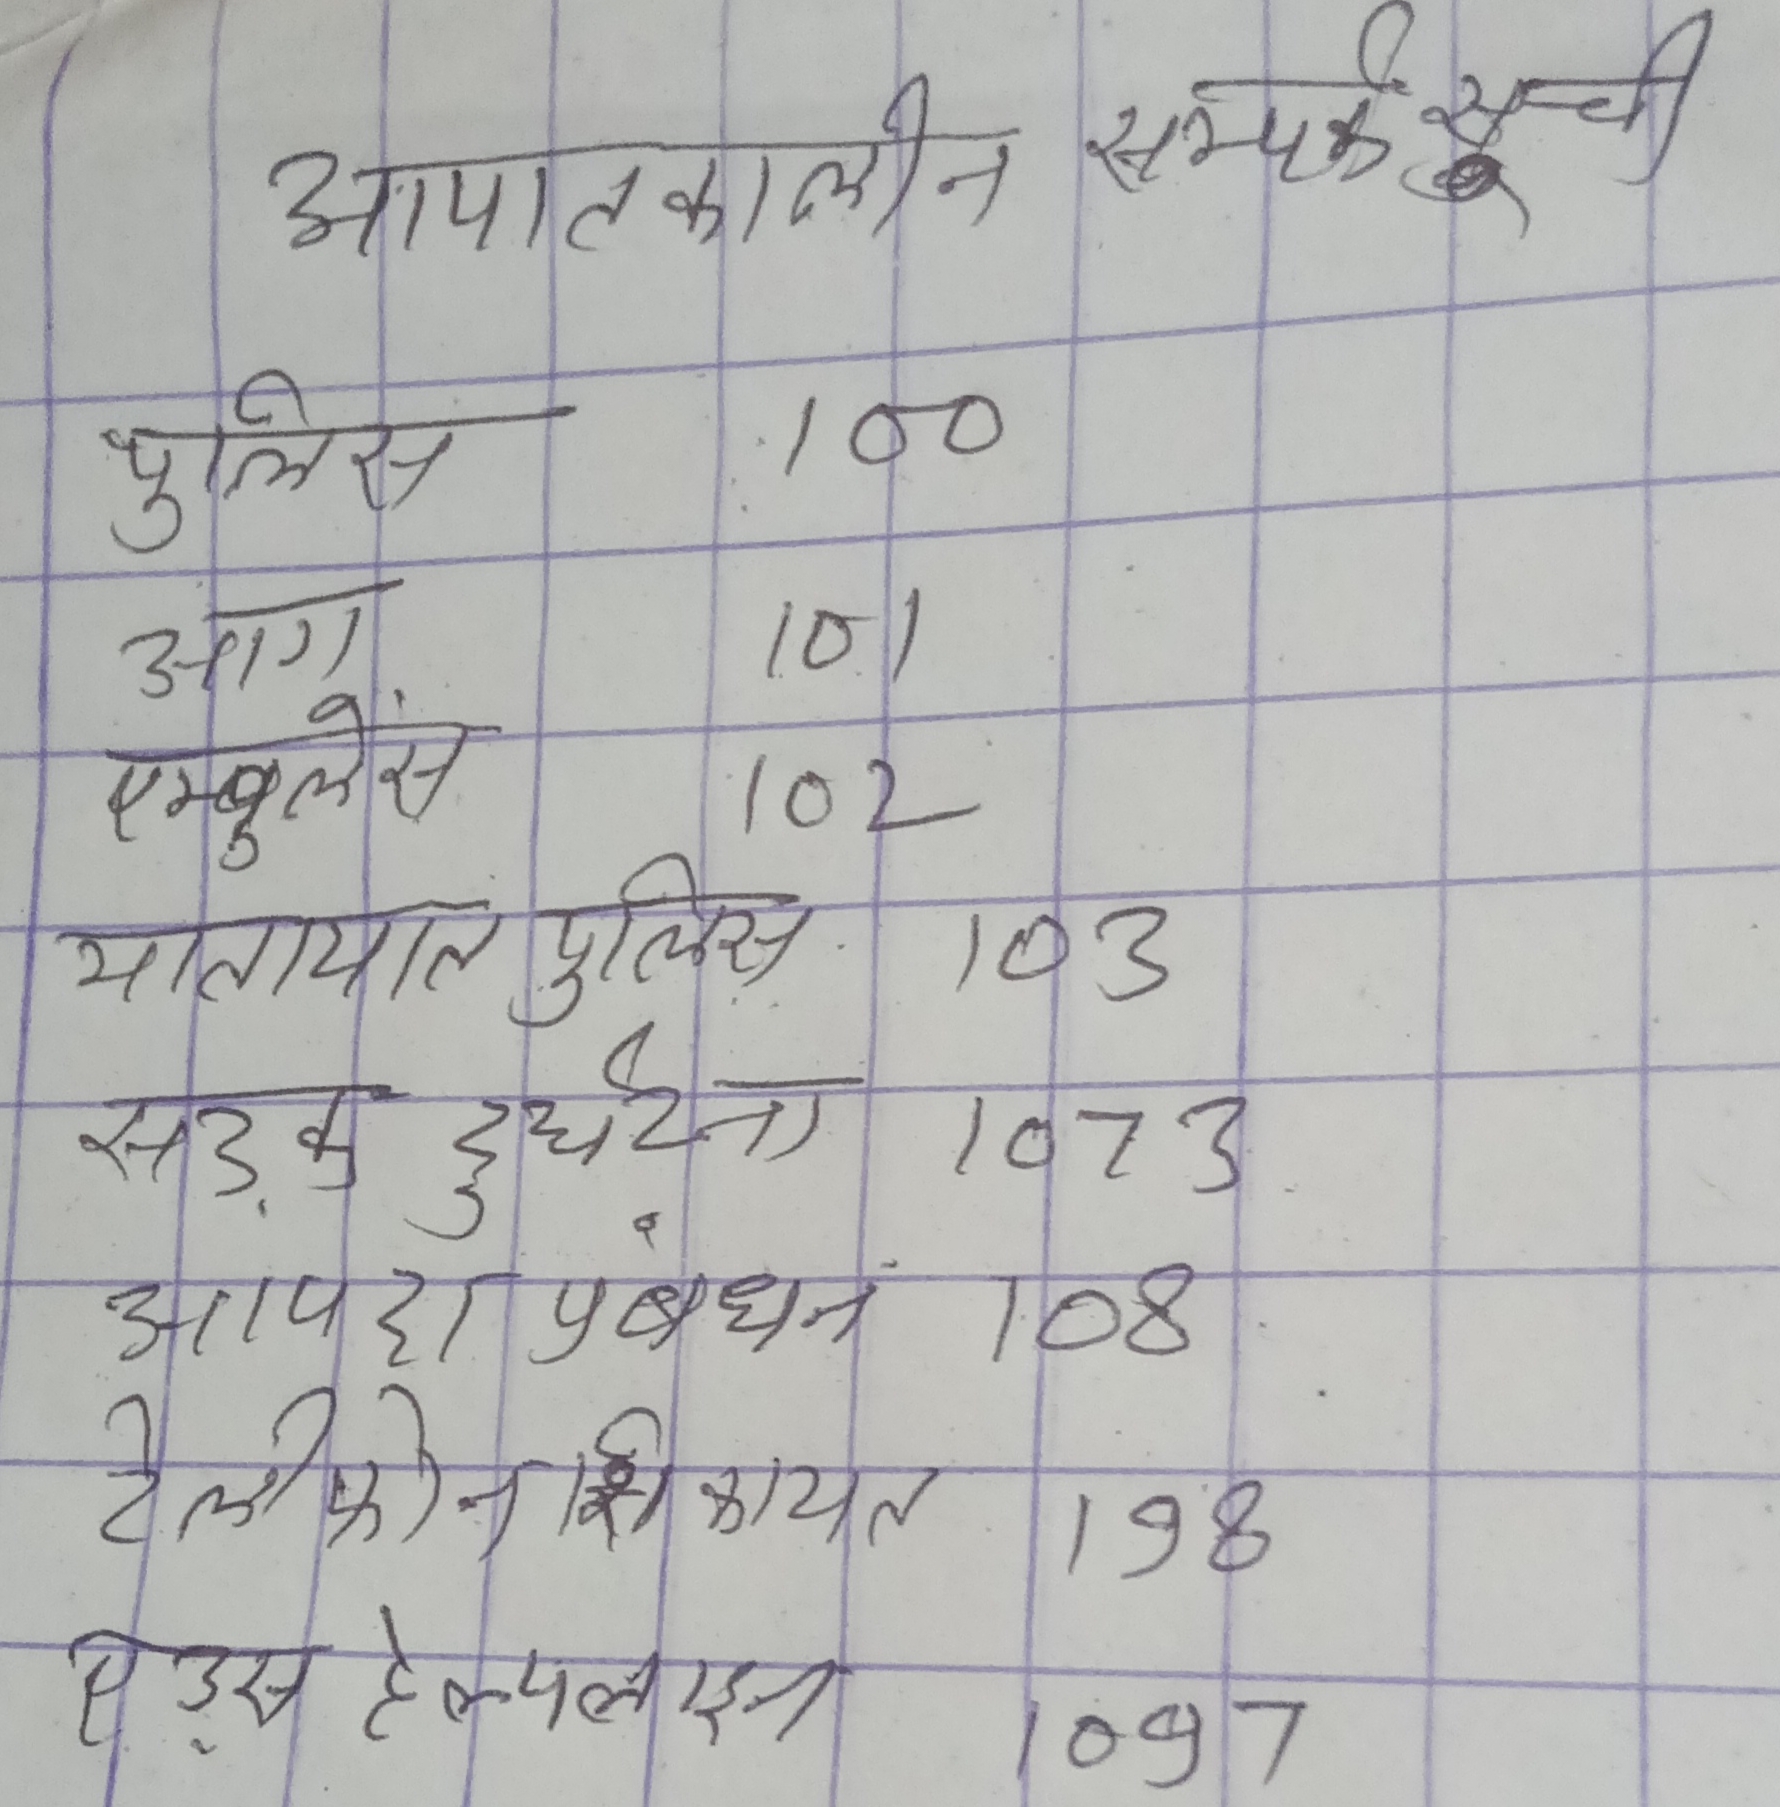 आपातकालीन सम्पर्क सूची
पुलिस 100
आग 101
एम्बुलेंस 102
यातायात पुलिस 103
सड़क दुर्घटना 1073
आपदा प्रबंधन 108
टेलीफोन शिकायत 198
एड्स हेल्पलाइन 1097